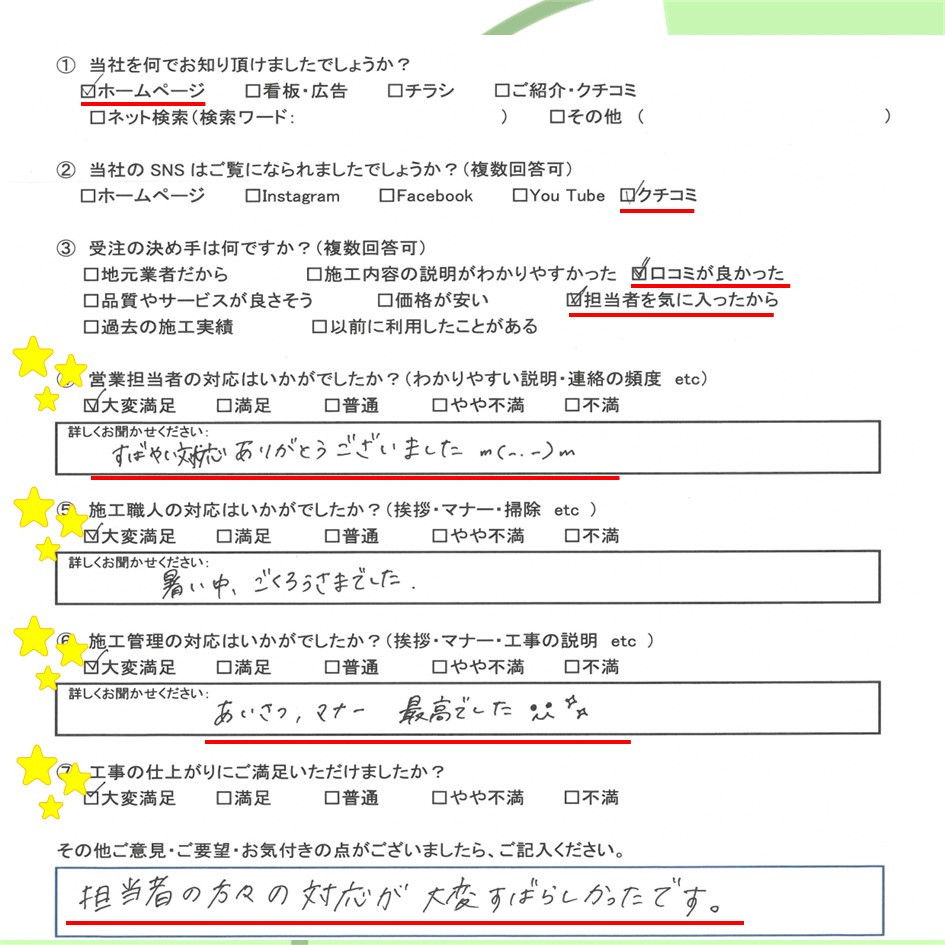 ① 当社を何でお知り頂けましたでしょうか？
☑ホームページ □看板・広告 □チラシ □ご紹介・クチコミ
□ネット検索（検索ワード： ） □その他 （ ）
② 当社の SNS はご覧になられましたでしょうか？（複数回答可）
□ホームページ □Instagram □Facebook □You Tube ☑クチコミ
③ 受注の決め手は何ですか？（複数回答可）
□地元業者だから □施工内容の説明がわかりやすかった ☑口コミが良かった
□品質やサービスが良さそう □価格が安い ☑担当者を気に入ったから
□過去の施工実績 □以前に利用したことがある
④ 営業担当者の対応はいかがでしたか？（わかりやすい説明・連絡の頻度 etc）
☑大変満足 □満足 □普通 □やや不満 □不満
詳しくお聞かせください：
すばやい対応 ありがとうございました m(-.-)m
⑤ 施工職人の対応はいかがでしたか？（挨拶・マナー・掃除 etc ）
☑大変満足 □満足 □普通 □やや不満 □不満
詳しくお聞かせください：
暑い中、ごくろうさまでした.
⑥ 施工管理の対応はいかがでしたか？（挨拶・マナー・工事の説明 etc ）
☑大変満足 □満足 □普通 □やや不満 □不満
詳しくお聞かせください：
あいさつ, マナー 最高でした
⑦ 工事の仕上がりにご満足いただけましたか？
☑大変満足 □満足 □普通 □やや不満 □不満
その他ご意見・ご要望・お気付きの点がございましたら、ご記入ください。
担当者の方々の対応が 大変すばらしかったです。